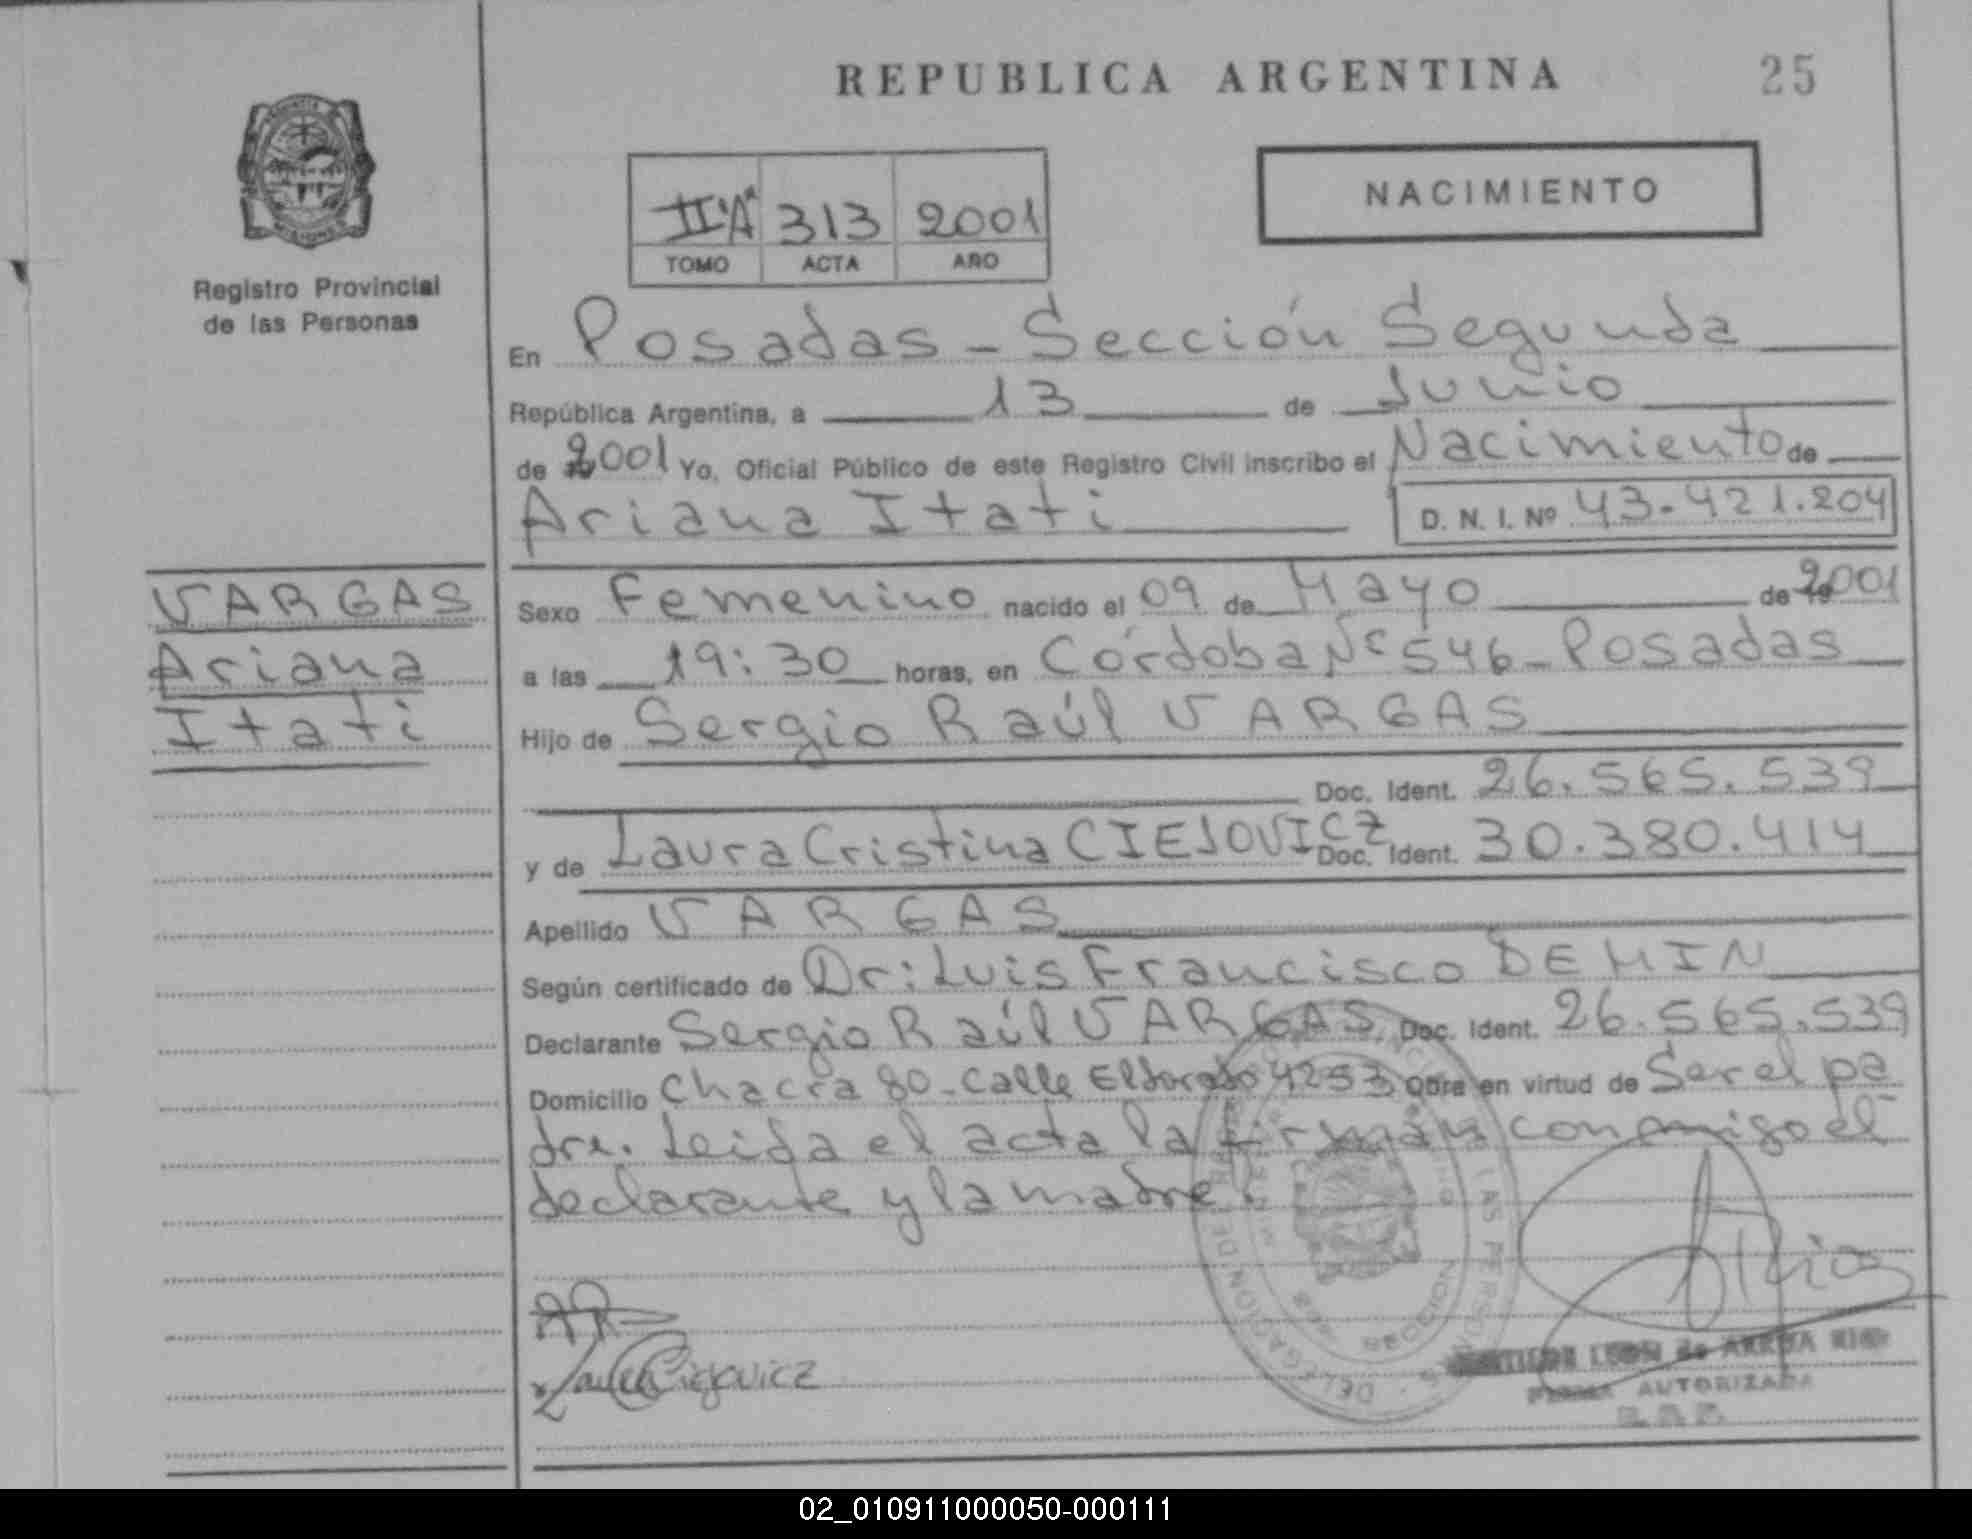 REPUBLICA ARGENTINA
25
NACIMIENTO
II "A" 313 2001
TOMO ACTA AÑO
Registro Provincial
de las Personas
En Posadas - Sección Segunda
República Argentina, a 13 de Junio
de 2001 Yo, Oficial Público de este Registro Civil inscribo el Nacimiento de
Ariana Itati D. N. I. Nº 43.421.204
VARGAS
Ariana
Itati
Sexo Femenino nacido el 09 de Mayo de 2001
a las 19:30 horas, en Córdoba Nº 546 - Posadas
Hijo de Sergio Raúl VARGAS
Doc. Ident. 26.565.539
y de Laura Cristina CIESOVICZ Doc. Ident. 30.380.414
Apellido VARGAS
Según certificado de Dr: Luis Francisco DEMIN
Declarante Sergio Raúl VARGAS Doc. Ident. 26.565.539
Domicilio Chacra 80 - Calle Eldorado 4253 Obra en virtud de Ser el pa
dre. Leida el acta la firman conmigo el
declarante y la madre.
FIRMA AUTORIZADA
02_010911000050-000111